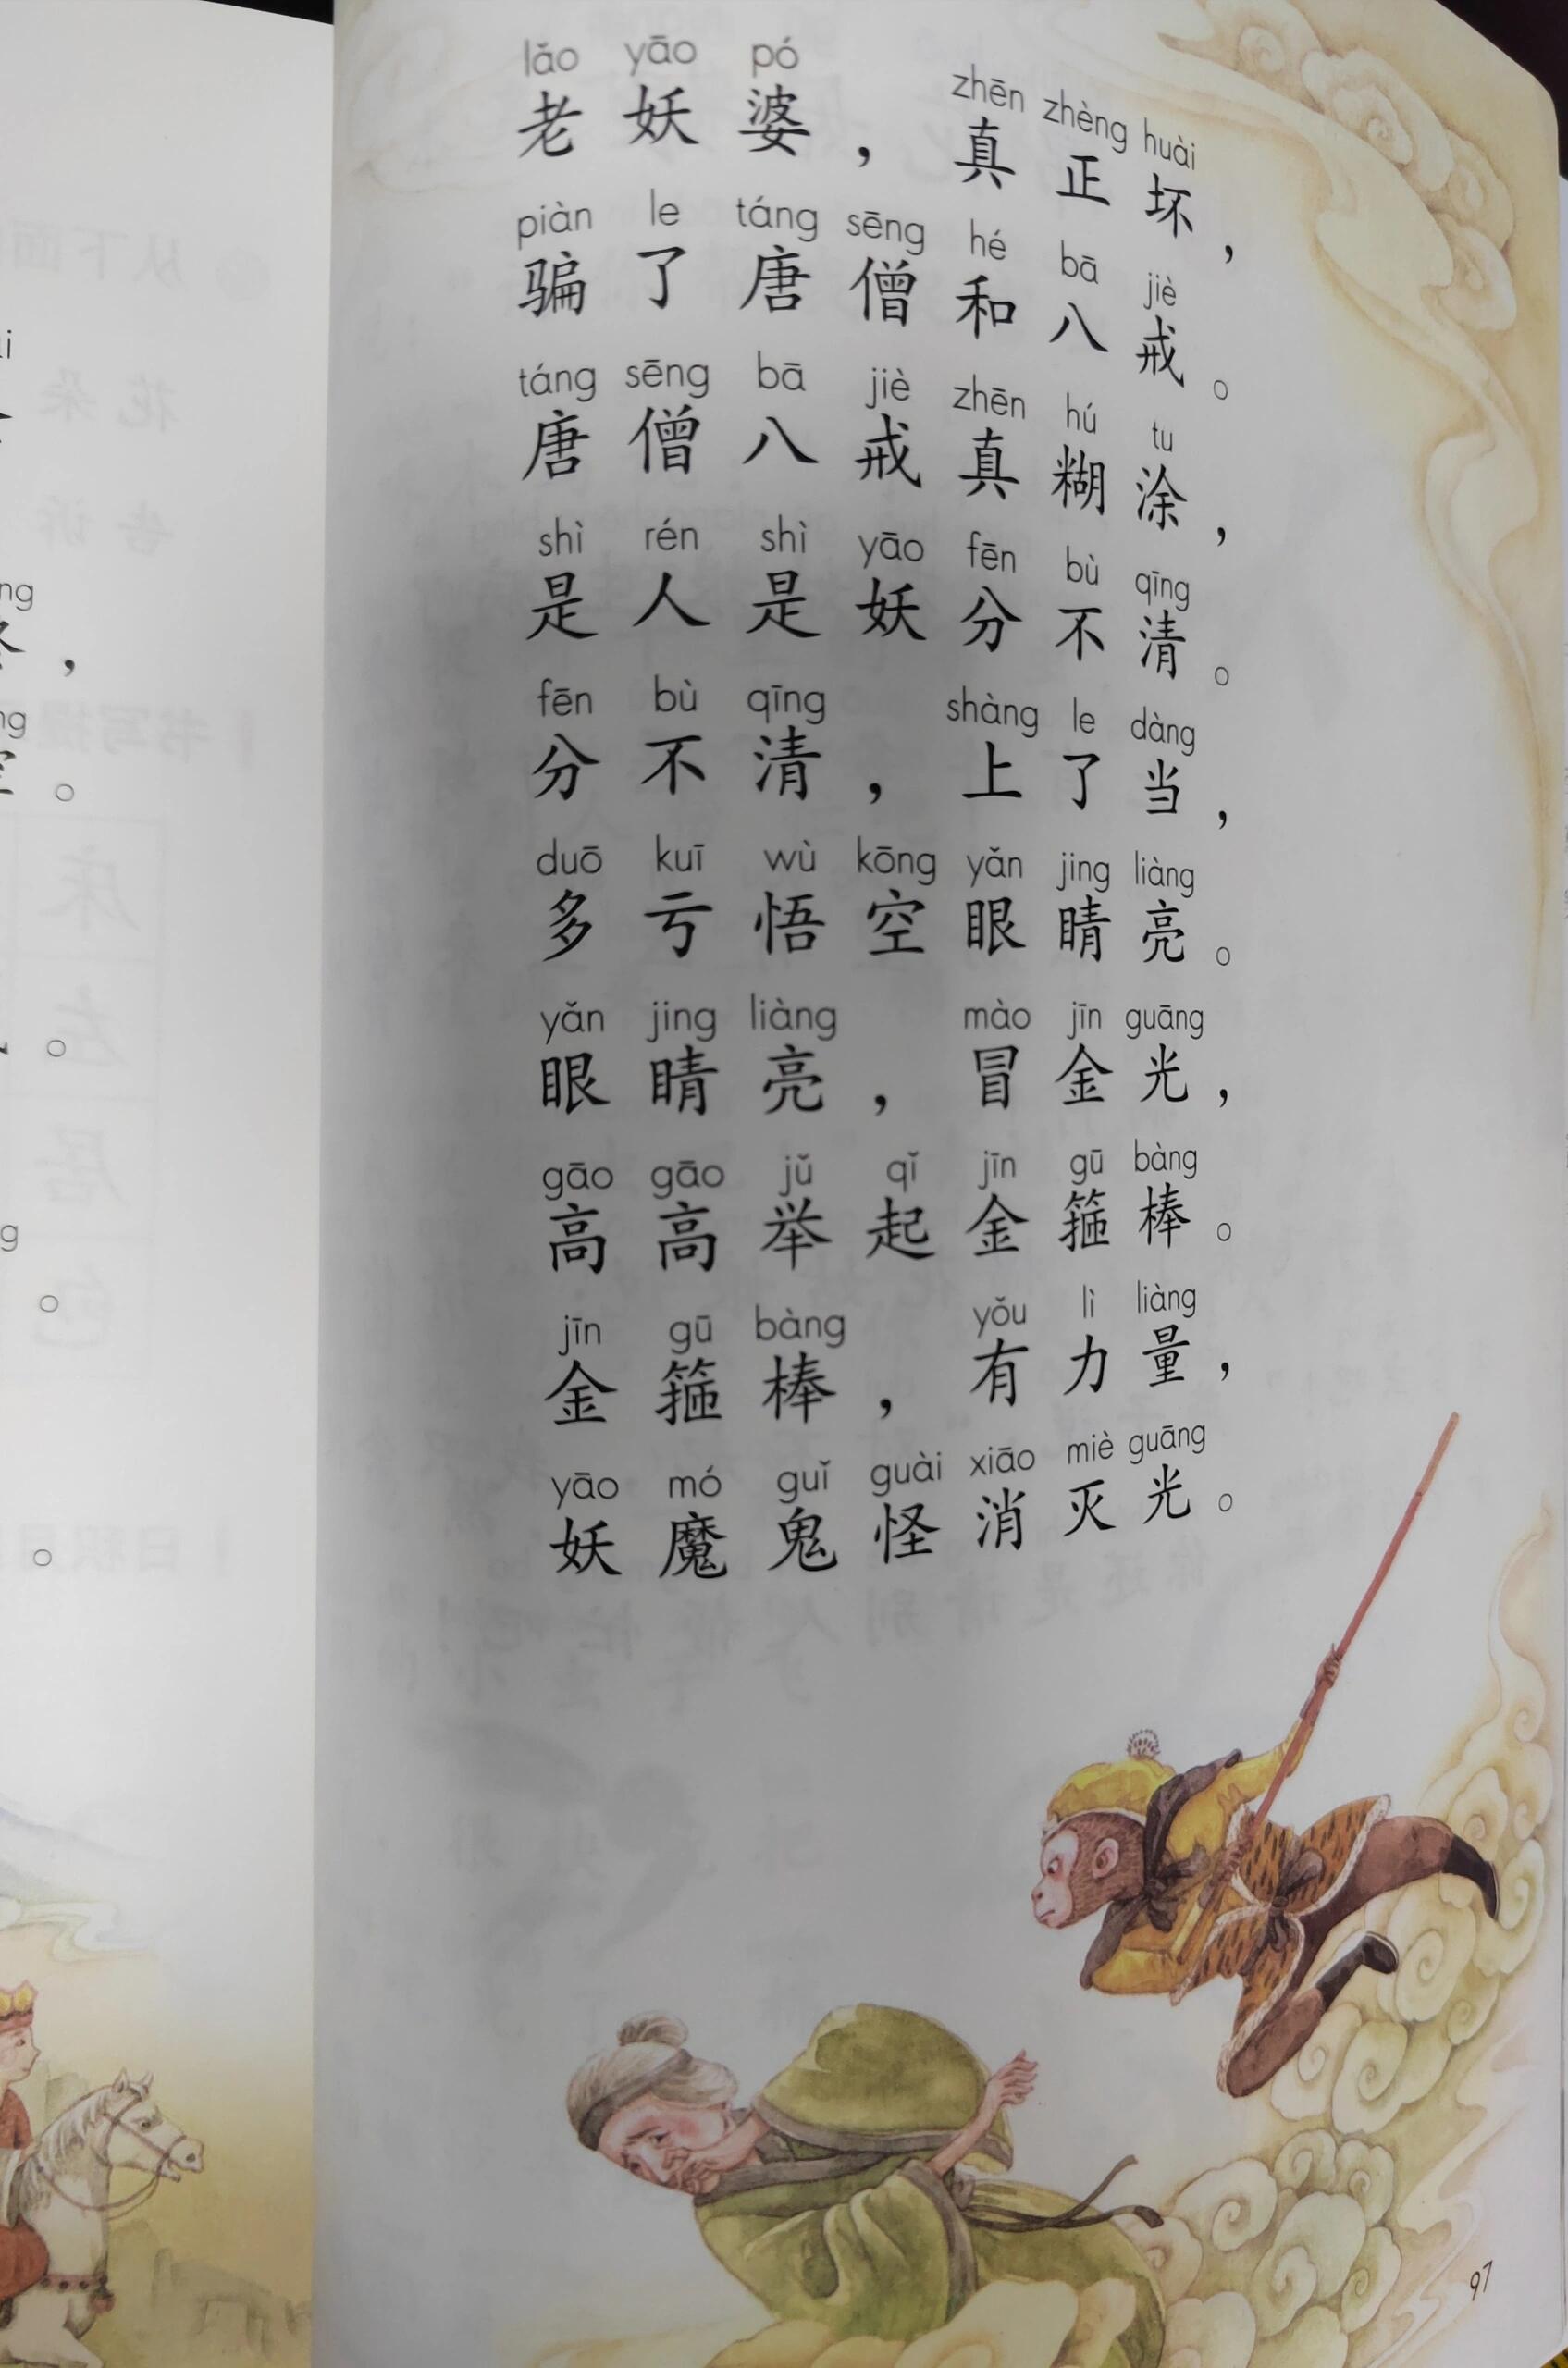 lǎo yāo pó zhēn zhèng huài
老妖婆，真正坏，
piàn le táng sēng hé bā jiè
骗了唐僧和八戒。
táng sēng bā jiè zhēn hú tu
唐僧八戒真糊涂，
shì rén shì yāo fēn bù qīng
是人是妖分不清。
fēn bù qīng shàng le dàng
分不清，上了当，
duō kuī wù kōng yǎn jing liàng
多亏悟空眼睛亮。
yǎn jing liàng mào jīn guāng
眼睛亮，冒金光，
gāo gāo jǔ qǐ jīn gū bàng
高高举起金箍棒。
jīn gū bàng yǒu lì liàng
金箍棒，有力量，
yāo mó guǐ guài xiāo miè guāng
妖魔鬼怪消灭光。
97